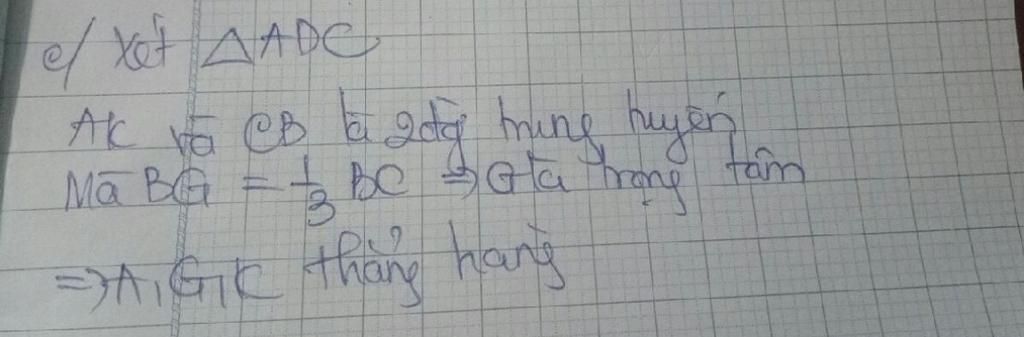 c/ Xét △ADC
AK và CB là 2 đg trung tuyến
Mà BG = 1/3 BC ⇒ G là trọng tâm
⇒ A, G, K thẳng hàng